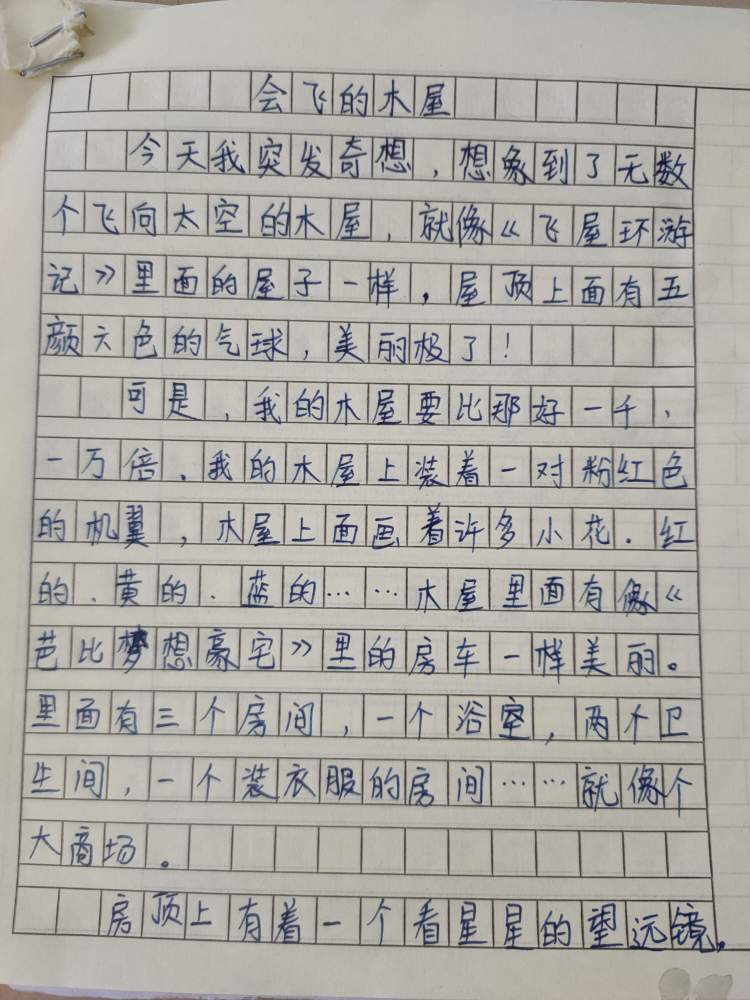 会飞的木屋
今天我突发奇想，想象到了无数
个飞向太空的木屋，就像《飞屋环游
记》里面的屋子一样，屋顶上面有五
颜六色的气球，美丽极了！
可是，我的木屋要比那好一千、
一万倍．我的木屋上装着一对粉红色
的机翼，木屋上面画着许多小花．红
的、黄的、蓝的……木屋里面有像《
芭比梦想豪宅》里的房车一样美丽。
里面有三个房间，一个浴室，两个卫
生间，一个装衣服的房间……就像个
大商场。
房顶上有着一个看星星的望远镜，